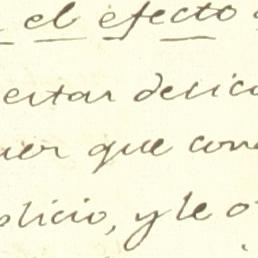 el efecto
estar delica
uer que con
plicio, y le o